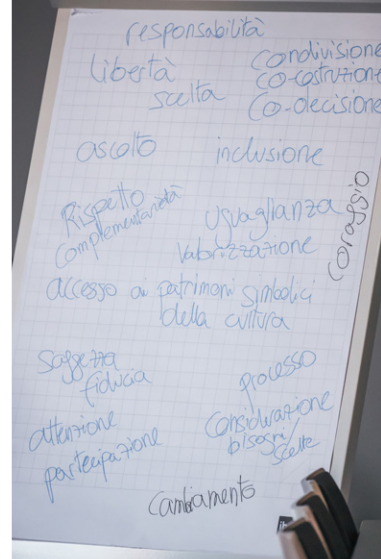 responsabilità
libertà
scelta
condivisione
co-costruzione
Co-decisione
ascolto
inclusione
Rispetto
complementarietà
Uguaglianza
Valorizzazione
coraggio
accesso ai patrimoni simbolici
della cultura
Saggezza
fiducia
processo
attenzione
partecipazione
Considerazione
bisogni/
scelte
Cambiamento